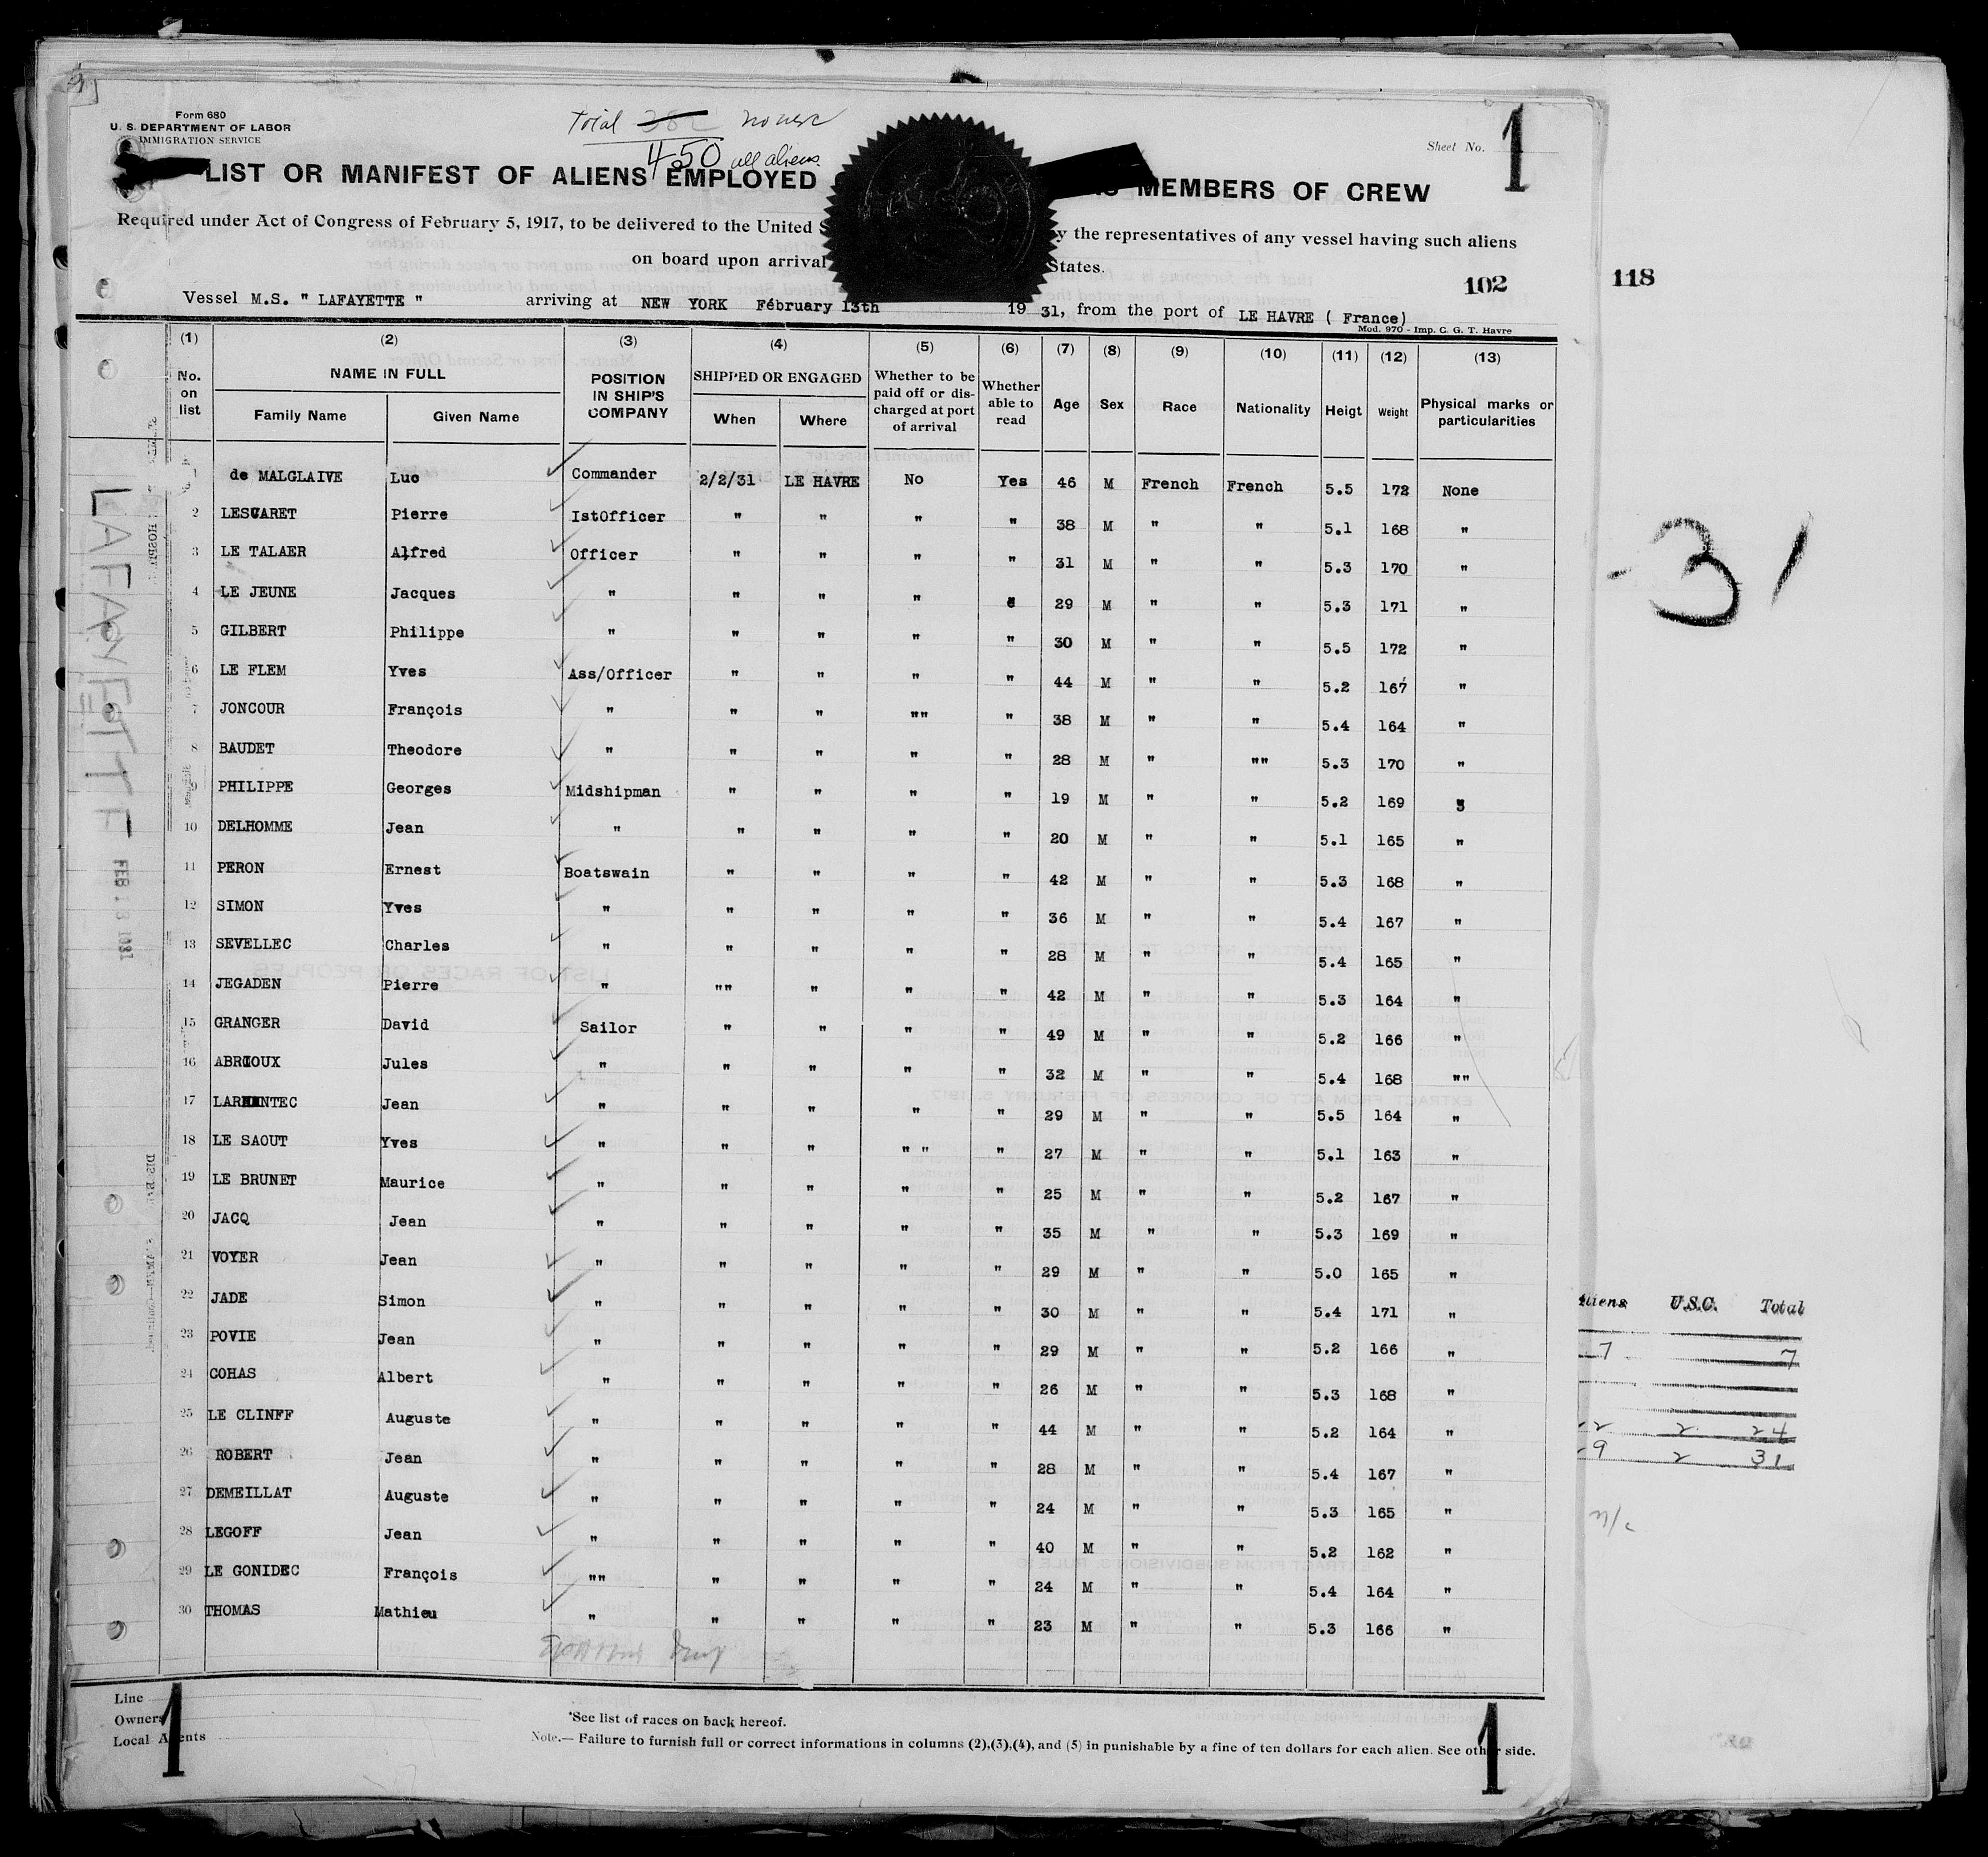 Form 680
U. S. DEPARTMENT OF LABOR
IMMIGRATION SERVICE
Total 382 no usc
450 all aliens
Sheet No. 1
LIST OR MANIFEST OF ALIENS EMPLOYED MEMBERS OF CREW
Required under Act of Congress of February 5, 1917, to be delivered to the United y the representatives of any vessel having such aliens
on board upon arrival States.
102
118
Vessel M.S. " LAFAYETTE " arriving at NEW YORK February 13th 19 31, from the port of LE HAVRE ( France)
Mod. 970 - Imp. C. G. T. Havre
(1) (2) (3) (4) (5) (6) (7) (8) (9) (10) (11) (12) (13)
No. on list NAME IN FULL Family Name Given Name POSITION IN SHIP'S COMPANY SHIPPED OR ENGAGED When Where Whether to be paid off or dis-charged at port of arrival Whether able to read Age Sex Race Nationality Heigt Weight Physical marks or particularities
1 de MALGLAIVE Luc Commander 2/2/31 LE HAVRE No Yes 46 M French French 5.5 172 None
2 LESCARET Pierre IstOfficer " " " " 38 M " " 5.1 168 "
3 LE TALAER Alfred Officer " " " " 31 M " " 5.3 170 "
4 LE JEUNE Jacques " " " " 29 M " " 5.3 171 "
5 GILBERT Philippe " " " " " 30 M " " 5.5 172 "
6 LE FLEM Yves Ass/Officer " " " " 44 M " " 5.2 167 "
7 JONCOUR François " " " "" " 38 M " " 5.4 164 "
8 BAUDET Theodore " " " " " 28 M " "" 5.3 170 "
9 PHILIPPE Georges Midshipman " " " " 19 M " " 5.2 169
10 DELHOMME Jean " " " " " 20 M " " 5.1 165 "
11 PERON Ernest Boatswain " " " " 42 M " " 5.3 168 "
12 SIMON Yves " " " " " 36 M " " 5.4 167 "
13 SEVELLEC Charles " " " " " 28 M " " 5.4 165 "
14 JEGADEN Pierre " "" " " " 42 M " " 5.3 164 "
15 GRANGER David Sailor " " " " 49 M " " 5.2 166 "
16 ABRIOUX Jules " " " " " 32 M " " 5.4 168 ""
17 Jean " " " " " 29 M " " 5.5 164 "
18 LE SAOUT Yves " " " " " " 27 M " " 5.1 163 "
19 LE BRUNET Maurice " " " " " 25 M " " 5.2 167 "
20 JACQ Jean " " " " " 35 M " " 5.3 169 "
21 VOYER Jean " " " " " 29 M " " 5.0 165 "
22 JADE Simon " " " " " 30 M " " 5.4 171 "
23 POVIE Jean " " " " " 29 M " " 5.2 166 "
24 COHAS Albert " " " " " 26 M " " 5.3 168 "
25 LE CLINFF Auguste " " " " " 44 M " " 5.2 164 "
26 ROBERT Jean " " " " " 28 M " " 5.4 167 "
27 DEMEILLAT Auguste " " " " " 24 M " " 5.3 165 "
28 LEGOFF Jean " " " " " 40 M " " 5.2 162 "
29 LE GONIDEC François "" " " " " 24 M " " 5.4 164 "
30 THOMAS Mathieu " " " " " 23 M " " 5.3 166 "
Line
Owners
Local Agents
1
*See list of races on back hereof.
Note.— Failure to furnish full or correct informations in columns (2),(3),(4), and (5) in punishable by a fine of ten dollars for each alien. See other side.
1
LAFAYETTE
FEB 13 1931
-31
Aliens U.S.C. Total
7 7
2 2 24
9 2 31
n/c